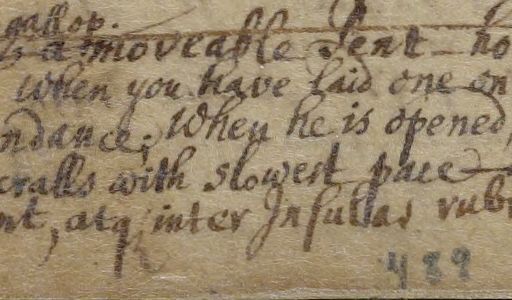 gallop.
a moveable Tent ho
When you have laid one on
ndance; When he is opened,
cralls with slowest pace
nt, atq, inter Insulas rub
489